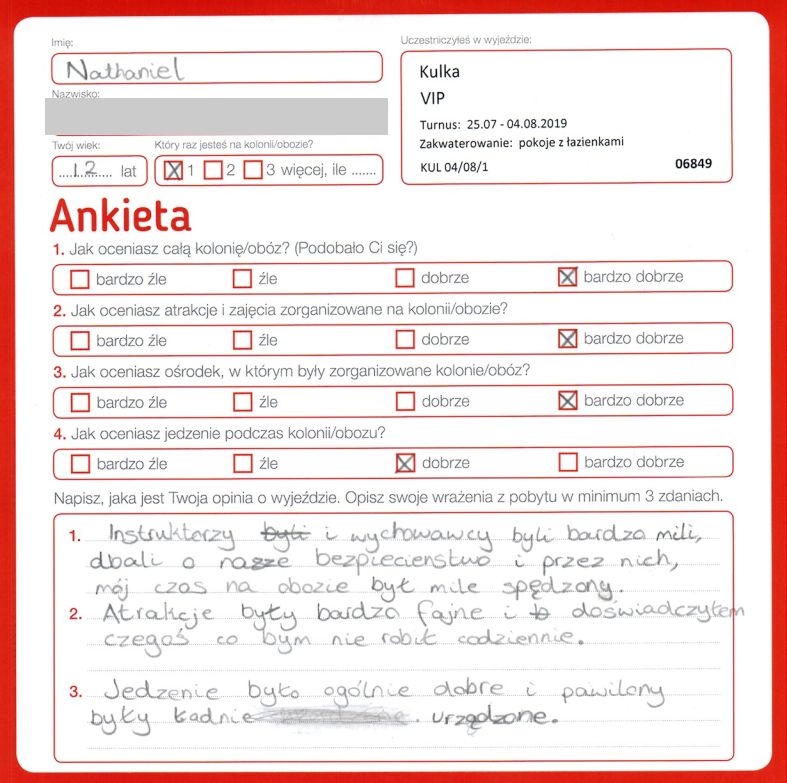 Imię:
Nathaniel
Nazwisko:
Twój wiek:
12 lat
Który raz jesteś na kolonii/obozie?
1 2 3 więcej, ile .......
Uczestniczyłeś w wyjeździe:
Kulka
VIP
Turnus: 25.07 - 04.08.2019
Zakwaterowanie: pokoje z łazienkami
KUL 04/08/1 06849
Ankieta
1. Jak oceniasz całą kolonię/obóz? (Podobało Ci się?)
bardzo źle źle dobrze bardzo dobrze
2. Jak oceniasz atrakcje i zajęcia zorganizowane na kolonii/obozie?
bardzo źle źle dobrze bardzo dobrze
3. Jak oceniasz ośrodek, w którym były zorganizowane kolonie/obóz?
bardzo źle źle dobrze bardzo dobrze
4. Jak oceniasz jedzenie podczas kolonii/obozu?
bardzo źle źle dobrze bardzo dobrze
Napisz, jaka jest Twoja opinia o wyjeździe. Opisz swoje wrażenia z pobytu w minimum 3 zdaniach.
1. Instruktorzy byli i wychowawcy byli bardzo mili,
dbali o nasze bezpiecienstwo i przez nich,
mój czas na obozie był mile spędzony.
2. Atrakcje były bardzo fajne i doświadczyłem
czegoś co bym nie robił codziennie.
3. Jedzenie było ogólnie dobre i pawilony
były ładnie urządzone.